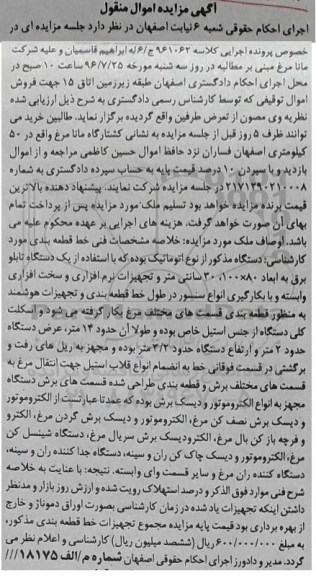 آگهی مزایده اموال منقول
اجرای احکام حقوقی شعبه ۶ نیابت اصفهان در نظر دارد جلسه مزایده ای در
خصوص پرونده اجرایی کلاسه ۹۶۱۰۶۲ج/۶/له ابراهیم قاسمیان و علیه شرکت
مانا مرغ مبنی بر مطالبه در روز سه شنبه مورخه ۹۶/۷/۲۵ ساعت ۱۰ صبح در
محل اجرای احکام دادگستری اصفهان طبقه زیرزمین اتاق ۱۵ جهت فروش
اموال توقیفی که توسط کارشناس رسمی دادگستری به شرح ذیل ارزیابی شده
نظریه وی مصون از تعرض طرفین واقع گردیده برگزار نماید. طالبین خرید می
توانند ظرف ۵ روز قبل از جلسه مزایده به نشانی کشتارگاه مانا مرغ واقع در ۵۰
کیلومتری اصفهان فساران نزد حافظ اموال حسین کاظمی مراجعه و از اموال
بازدید و با سپردن ۱۰ درصد قیمت پایه به حساب سپرده دادگستری به شماره
۲۱۷۱۳۹۰۲۱۰۰۰۸ در جلسه مزایده شرکت نمایند. پیشنهاد دهنده بالاترین
قیمت برنده مزایده خواهد بود تسلیم ملک مورد مزایده پس از پرداخت تمام
بهای آن صورت خواهد گرفت. هزینه های اجرایی بر عهده محکوم علیه می
باشد. اوصاف ملک مورد مزایده: خلاصه مشخصات فنی خط قطعه بندی مورد
کارشناسی: دستگاه مذکور از نوع اتوماتیک بوده که با استفاده از یک دستگاه تابلو
برق به ابعاد ۸۰×۱۰۰، ۳۰ سانتی متر و تجهیزات نرم افزاری و سخت افزاری
وابسته و با بکارگیری انواع سنسور در طول خط قطعه بندی و تجهیزات هوشمند
به منظور قطعه بندی قسمت های مختلف مرغ بکار گرفته می شود و اسکلت
کلی دستگاه از جنس استیل خاص بوده و طولا آن حدود ۱۴ متر، عرض دستگاه
حدود ۲ متر و ارتفاع دستگاه حدود ۳/۲ متر بوده و مجهز به ریل های رفت و
برگشتی در قسمت فوقانی خط به انضمام انواع قلاب استیل جهت انتقال مرغ به
قسمت های مختلف برش و قطعه بندی طراحی شده قسمت های برش دستگاه
مجهز به انواع الکتروموتور و دیسک برش بوده که عمدتا عبارتست از الکتروموتور
و دیسک برش نصف کن مرغ، الکتروموتور و دیسک برش گردن مرغ، الکترو
و فرچه باز کن بال مرغ، الکترودیسک برش سربال مرغ، دستگاه شینسل کن
مرغ، الکتروموتور و دیسک چاک کن ران و سینه، دستگاه جدا کننده ران و سینه،
دستگاه کننده ران مرغ و سایر قسمت وای وابسته. نتیجه: با عنایت به خلاصه
شرح فنی موارد فوق الذکر و درصد استهلاک رویت شده و ارزش روز بازار و مدنظر
داشتن اینکه تجهیزات یاد شده در زمان کارشناسی بصورت اوراق دموناژ و خارج
از بهره برداری بود قیمت پایه مزایده مجموع تجهیزات خط قطعه بندی مذکور،
به مبلغ ۶۰۰/۰۰۰/۰۰۰ ریال (ششصد میلیون ریال) کارشناسی و اعلام نظر می
گردد. مدیر و دادورز اجرای احکام حقوقی اصفهان شماره م/الف ۱۸۱۷۵///